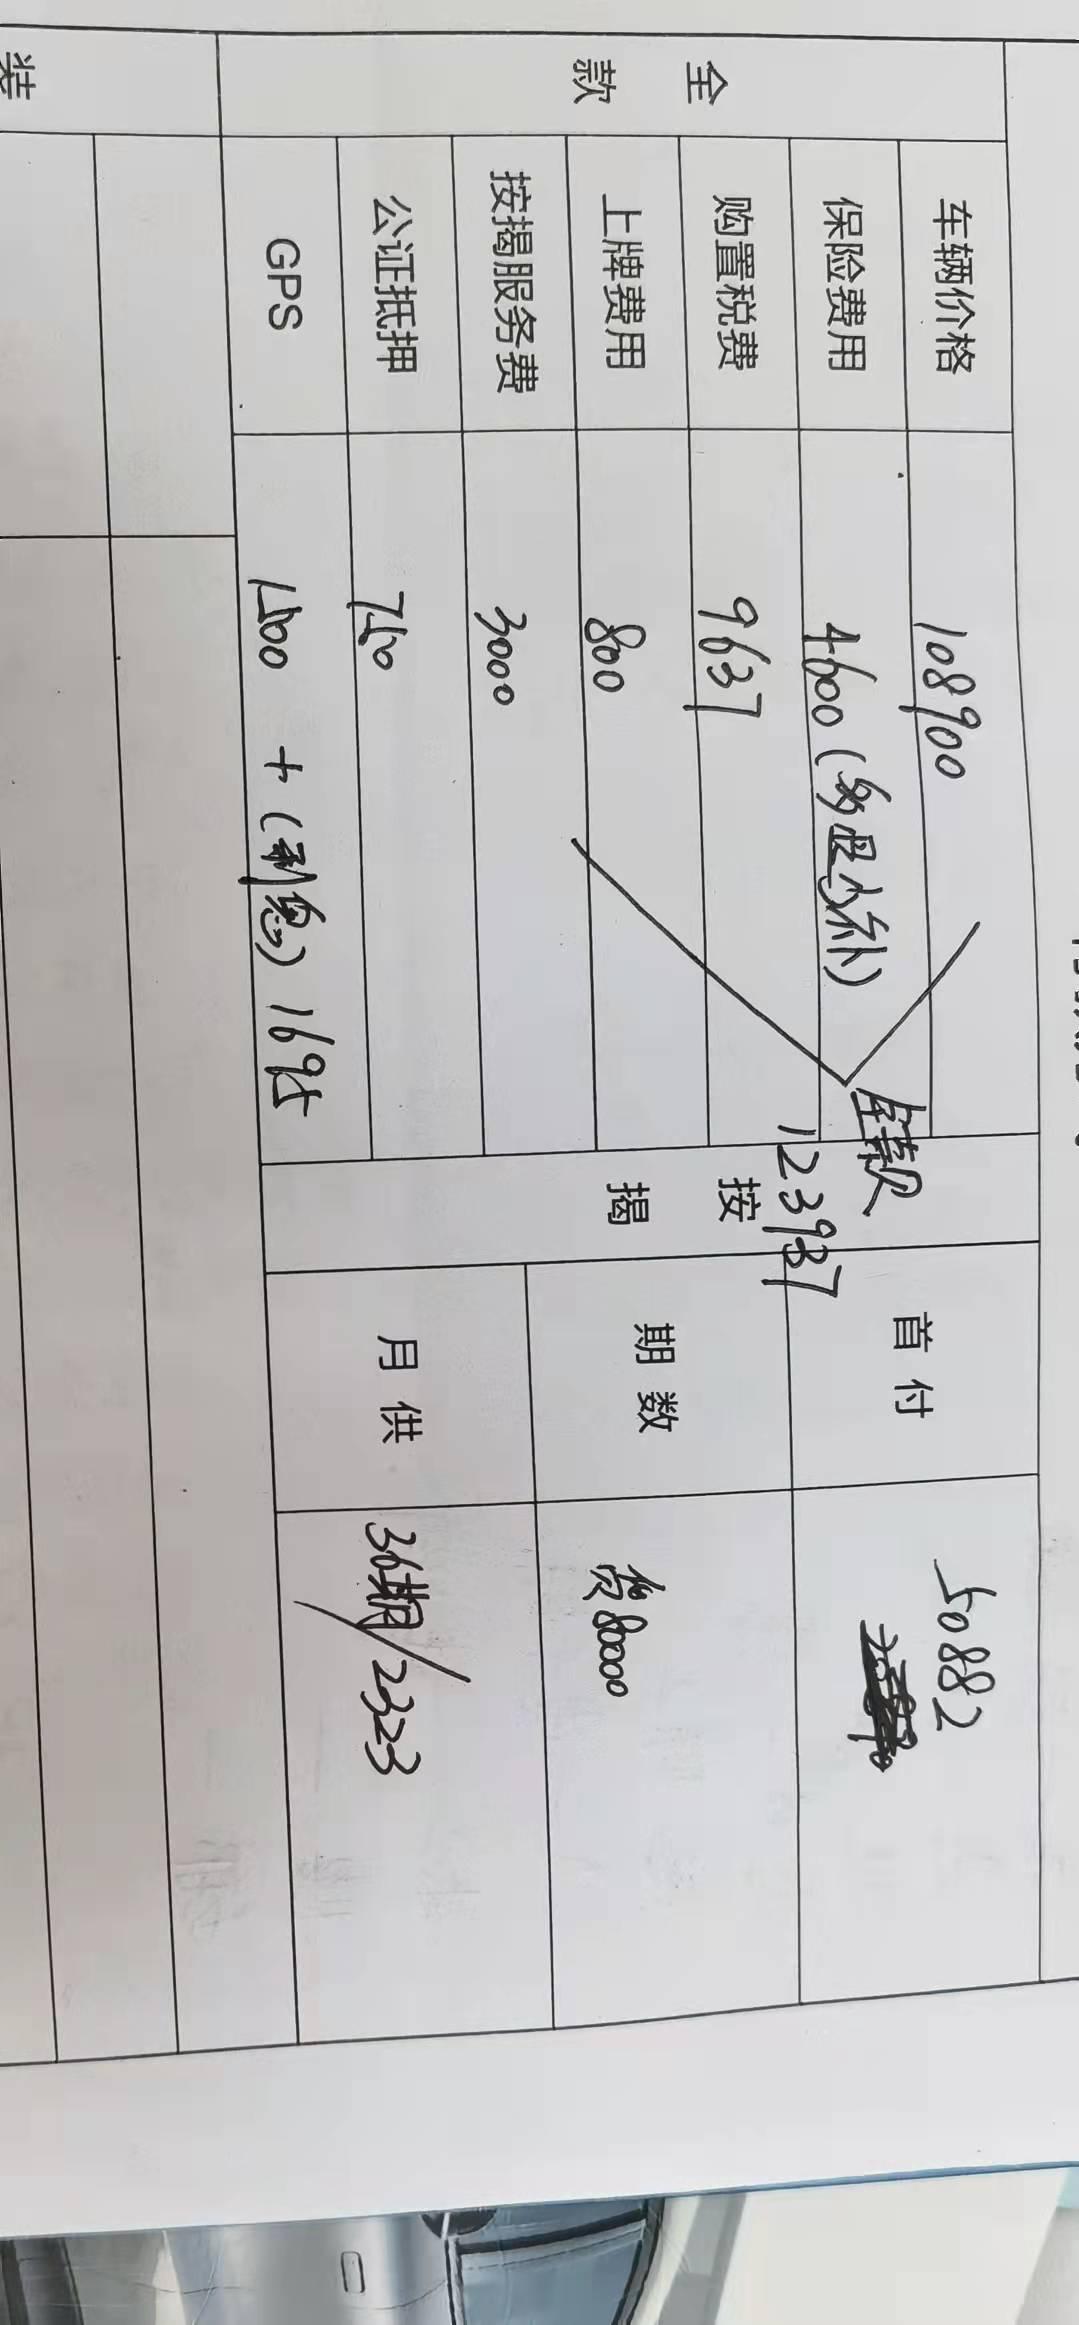 全款
车辆价格 108900
保险费用 4600(多退少补)
购置税费 9637
上牌费用 800
按揭服务费 3000
公证抵押 750
GPS 1500 +(利息)1695
全款
123937
按揭
首付 50882
期数 贷80000
月供 36期/2323
装